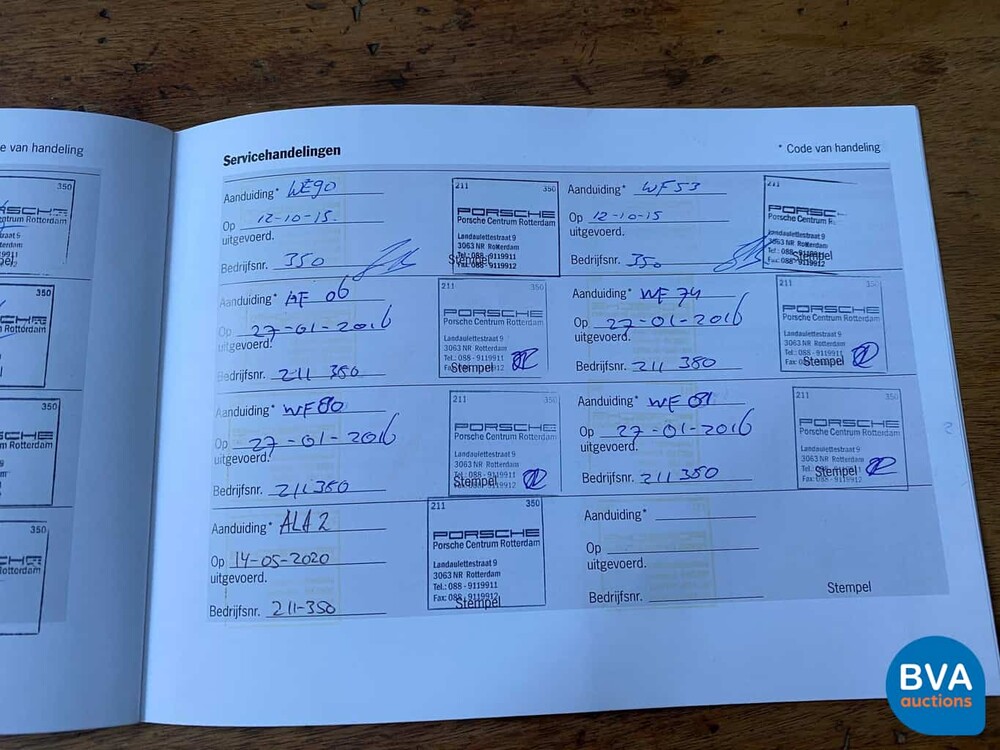 e van handeling
350
Porsche Centrum Rotterdam
350
350
350
Servicehandelingen
* Code van handeling
Aanduiding* WE90
Op 12-10-15.
uitgevoerd.
Bedrijfsnr. 350
211 350
PORSCHE
Porsche Centrum Rotterdam
Landaulettestraat 9
3063 NR Rotterdam
Tel.: 088 - 9119911
Fax: 088 - 9119912
Stempel
Aanduiding* WF53
Op 12-10-15
uitgevoerd.
Bedrijfsnr. 350
211
PORSC
Porsche Centrum Rotterdam
Landaulettestraat 9
3063 NR Rotterdam
Tel.: 088 - 9119911
Fax: 088 - 9119912
Stempel
Aanduiding* 06
Op 27-01-2016
uitgevoerd.
Bedrijfsnr. 211 350
211 350
PORSCHE
Porsche Centrum Rotterdam
Landaulettestraat 9
3063 NR Rotterdam
Tel.: 088 - 9119911
Fax: 088 - 9119912
Stempel
Aanduiding* WF74
Op 27-01-2016
uitgevoerd.
Bedrijfsnr. 211 350
211
PORSCHE
Porsche Centrum Rotterdam
Landaulettestraat 9
3063 NR Rotterdam
Tel.: 088 - 9119911
Fax: 088 - 9119912
Stempel
Aanduiding* WF80
Op 27-01-2016
uitgevoerd.
Bedrijfsnr. 211 350
211 350
PORSCHE
Porsche Centrum Rotterdam
Landaulettestraat 9
3063 NR Rotterdam
Tel.: 088 - 9119911
Fax: 088 - 9119912
Stempel
Aanduiding* WF81
Op 27-01-2016
uitgevoerd.
Bedrijfsnr. 211 350
211 350
PORSCHE
Porsche Centrum Rotterdam
Landaulettestraat 9
3063 NR Rotterdam
Tel.: 088 - 9119911
Fax: 088 - 9119912
Stempel
Aanduiding* ALA2
Op 14-05-2020
uitgevoerd.
Bedrijfsnr. 211-350
211 350
PORSCHE
Porsche Centrum Rotterdam
Landaulettestraat 9
3063 NR Rotterdam
Tel.: 088 - 9119911
Fax: 088 - 9119912
Stempel
Aanduiding*
Op
uitgevoerd.
Bedrijfsnr.
Stempel
BVA
auctions